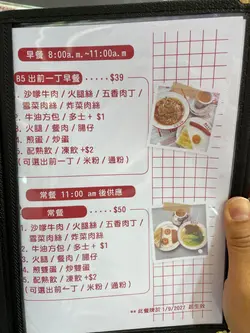 早餐 8:00a.m.~11:00a.m
B5 出前一丁早餐 ·····$39
1. 沙嗲牛肉 / 火腿絲 / 五香肉丁 /
雪菜肉絲 / 炸菜肉絲
2. 牛油方包 / 多士 + $1
3. 火腿 / 餐肉 / 腸仔
4. 煎蛋 / 炒蛋
5. 配熱飲 / 凍飲 +$2
(可選出前一丁 / 米粉 / 通粉)
常餐 11:00 am 後供應
常餐 ·····$50
1. 沙嗲牛肉 / 火腿絲 / 五香肉丁 /
雪菜肉絲 / 炸菜肉絲
2. 牛油方包 / 多士 + $1
3. 火腿 / 餐肉 / 腸仔
4. 煎雙蛋 / 炒雙蛋
5. 配熱飲 / 凍飲 +$2
(可選出前一丁 / 米粉 / 通粉)
** 此餐牌於 1/9/2022